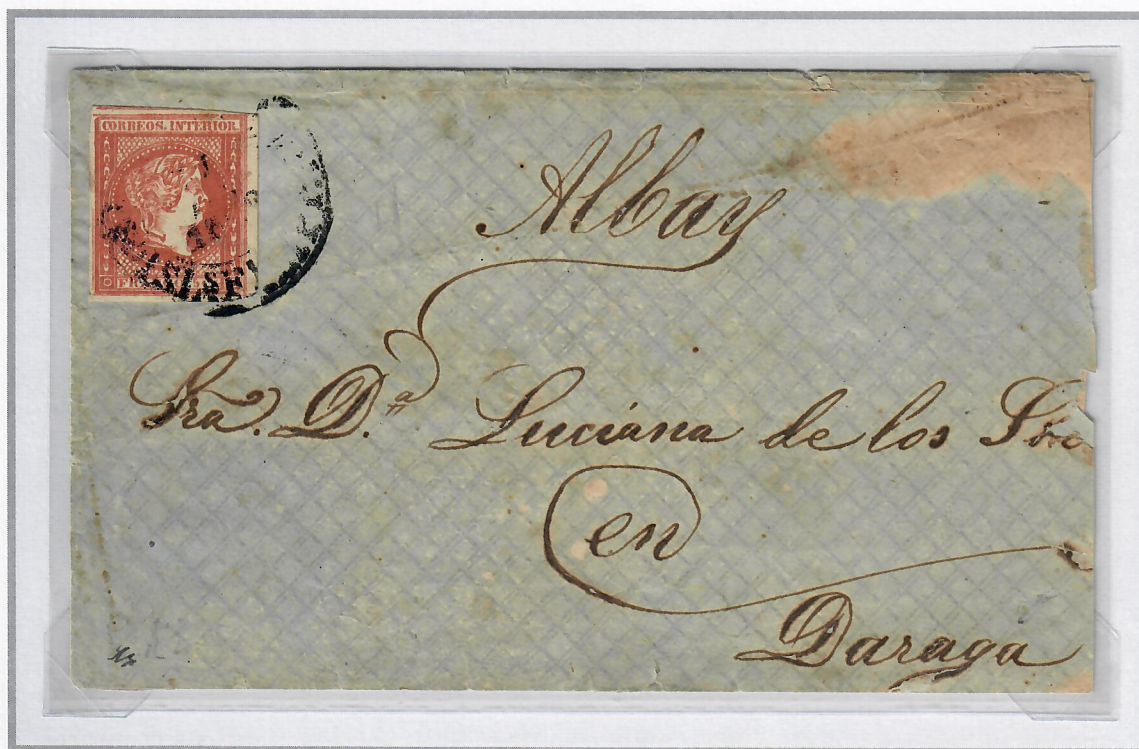 CORREOS. INTERIOR.
FR
Albay
Sra. D.ª Luciana de los
en
Daraga